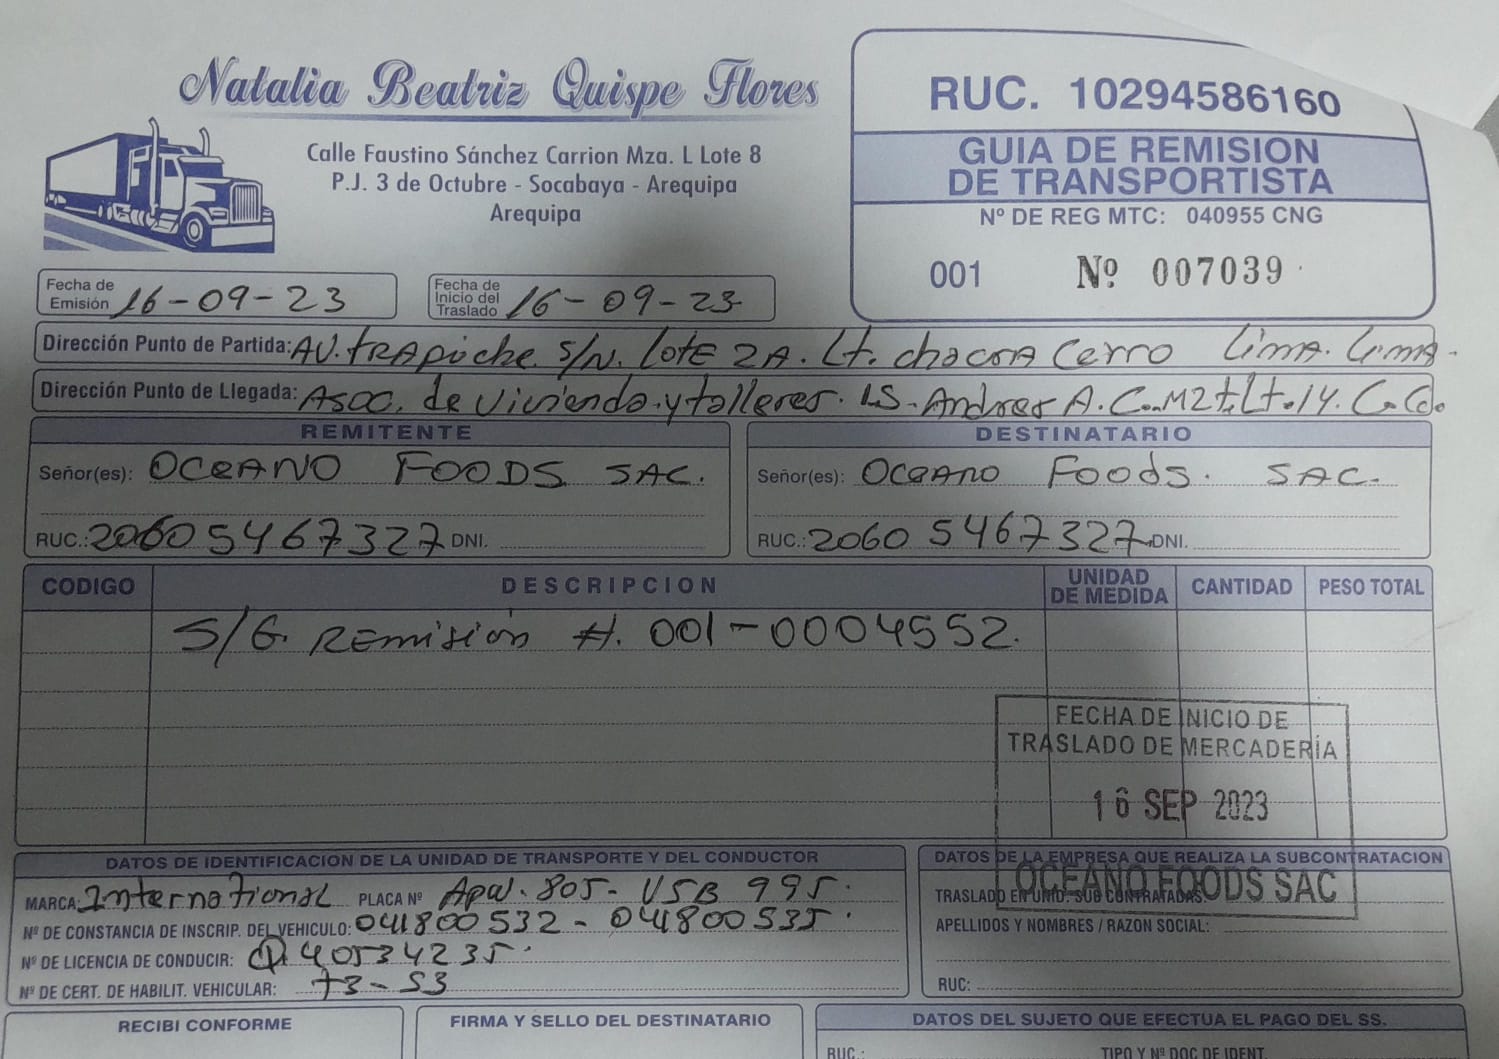 Natalia Beatriz Quispe Flores
Calle Faustino Sánchez Carrion Mza. L Lote 8
P.J. 3 de Octubre - Socabaya - Arequipa
Arequipa
RUC. 10294586160
GUIA DE REMISION
DE TRANSPORTISTA
Nº DE REG MTC: 040955 CNG
001 Nº 007039
Fecha de Emisión 16-09-23
Fecha de Inicio del Traslado 16-09-23
Dirección Punto de Partida: AV. TRApiche S/N. LOTE 2A. Lt. chacra Cerro Lima. Lima-
Dirección Punto de Llegada: Asoc. de Vivienda y talleres. S. Andres A. Lt. 14.
REMITENTE
Señor(es): OCEANO FOODS SAC.
RUC.: 20605467327 DNI.
DESTINATARIO
Señor(es): OCEANO Foods. SAC.
RUC.: 20605467327 DNI.
CODIGO DESCRIPCION UNIDAD DE MEDIDA CANTIDAD PESO TOTAL
S/G. REmisión #. 001-0004552.
FECHA DE INICIO DE
TRASLADO DE MERCADERÍA
16 SEP 2023
OCEANO FOODS SAC
DATOS DE IDENTIFICACION DE LA UNIDAD DE TRANSPORTE Y DEL CONDUCTOR
MARCA: International PLACA Nº Apw. 805- VSB 995.
Nº DE CONSTANCIA DE INSCRIP. DEL VEHICULO: 041800532-041800535.
Nº DE LICENCIA DE CONDUCIR: Q40534235.
Nº DE CERT. DE HABILIT. VEHICULAR: T3-S3
DATOS DE LA EMPRESA QUE REALIZA LA SUBCONTRATACION
TRASLADO EN UNID. SUB CONTRATADAS
APELLIDOS Y NOMBRES / RAZON SOCIAL:
RUC:
RECIBI CONFORME
FIRMA Y SELLO DEL DESTINATARIO
DATOS DEL SUJETO QUE EFECTUA EL PAGO DEL SS.
RUC.: TIPO Y Nº DOC DE IDENT.